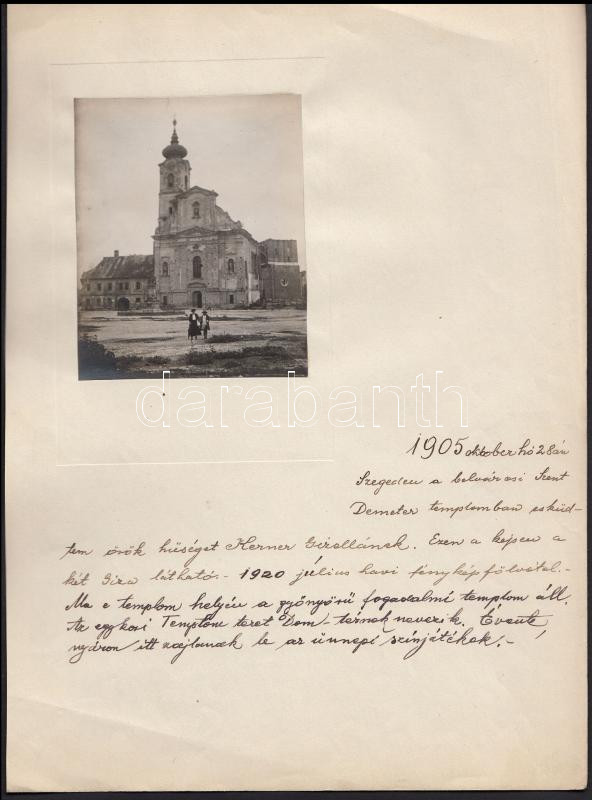 darabanth
1905 október hó 28án
Szegeden a belvárosi Szent
Demeter templomban esküd-
tem örök hűséget Kerner Gizellának. Ezen a képen a
két Giza látható.- 1920 július havi fénykép fölvétel.-
Ma e templom helyén a gyönyörű fogadalmi templom áll.
Az egykori Templom teret Dom-térnek nevezik. Évente
nyáron itt zajlanak le az ünnepi színjátékok.-